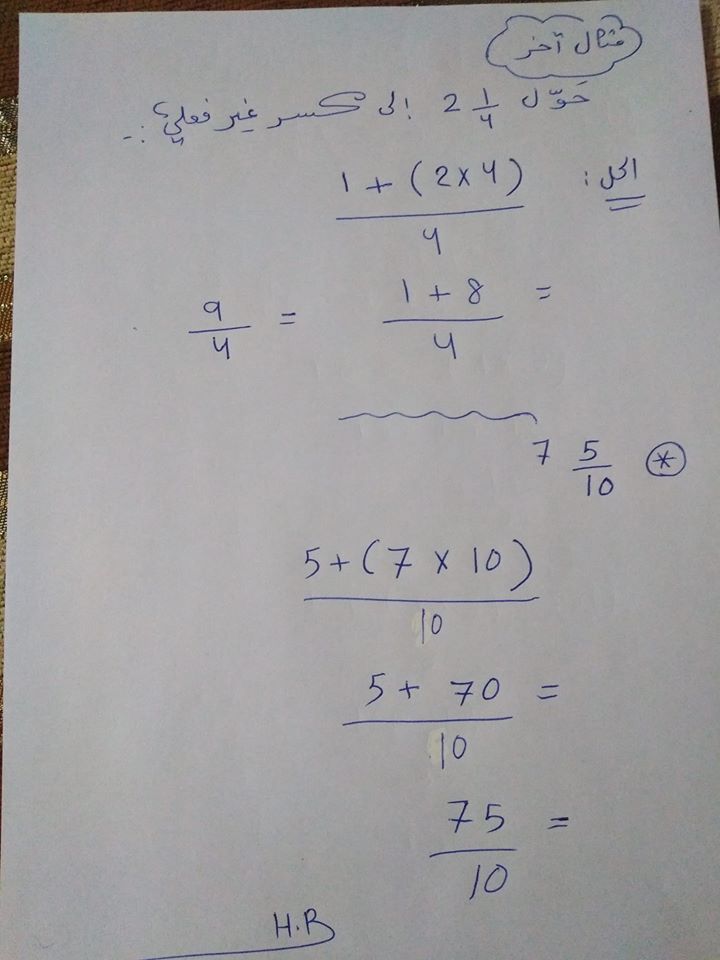 مثال آخر
حَوّل 2 1/4 إلى كسر غير فعلي؟ :-
الحل :
(1 + (2 x 4)) / 4
= (1 + 8) / 4 = 9/4
⊛ 7 5/10
(5 + (7 x 10)) / 10
= (5 + 70) / 10
= 75/10
H.R